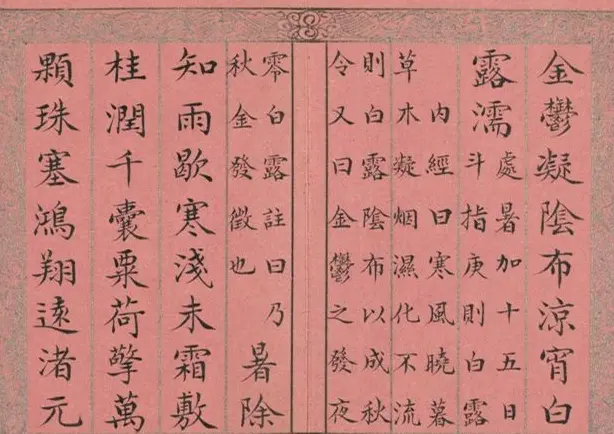 金鬱凝陰布涼宵白
露濡
處暑加十五日
斗指庚則白露
內經曰寒風曉暮
草木凝烟濕化不流
則白露陰布以成秋
令又曰金鬱之發夜
零白露註曰乃
秋金發徵也
暑除
知雨歇寒淺未霜敷
桂潤千囊粟荷擎萬
顆珠塞鴻翔遠渚元